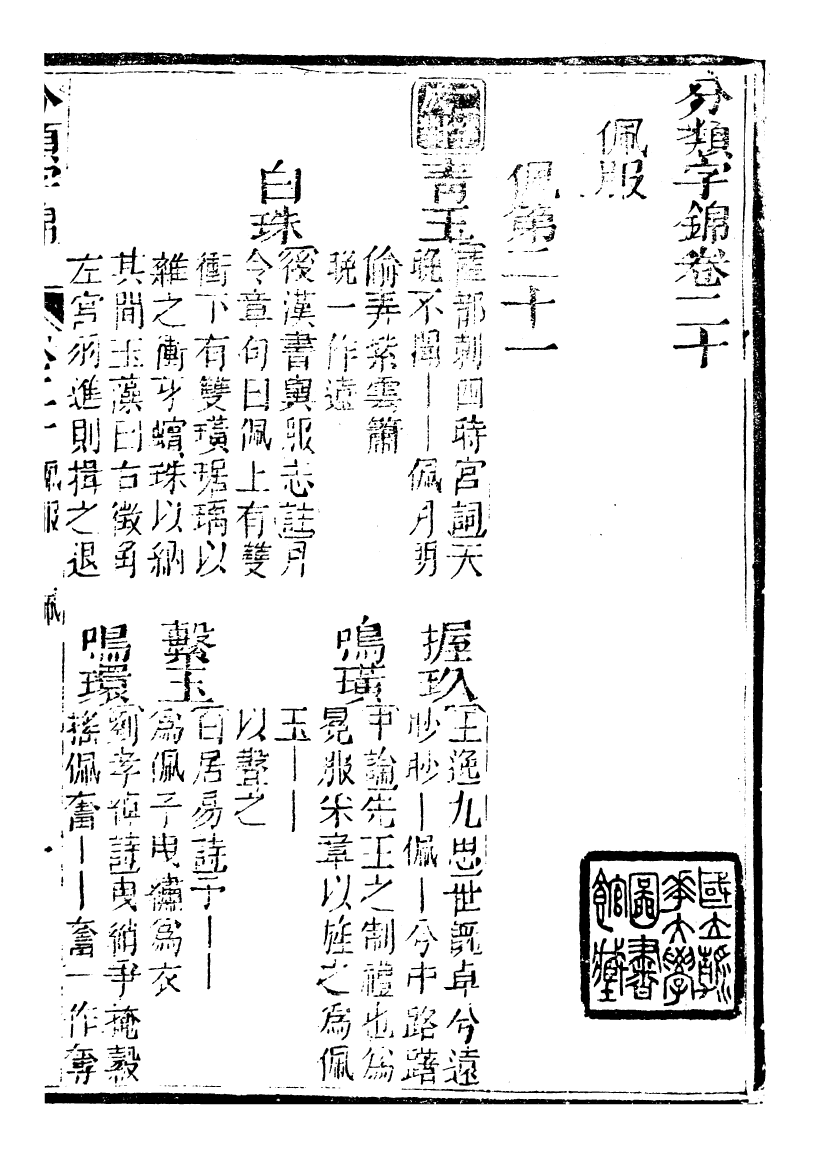 分類字錦卷二十
佩服
佩第二十一
青玉
薩都剌四時宮詞天
晚不聞｜｜佩月明
偷弄紫雲簫
晚一作遠
白珠
後漢書輿服志註月
令章句曰佩上有雙
衝下有雙璜琚瑀以
雜之衝牙蠙珠以納
其間玉藻曰右徵角
左宮羽進則揖之退
握玖
王逸九思世既卓兮遠
眇眇｜佩｜兮中路躇
鳴璜
中論先王之制禮也為
冕服采章以旌之為佩
玉｜｜
以聲之
繫玉
白居易詩子｜｜
為佩子曳繡為衣
鳴環
劉孝倬詩曳綃爭掩縠
搖佩奮｜｜奮一作奪
分類字錦
卷二十 佩服 佩
一
國立清
華大學
圖書
館藏